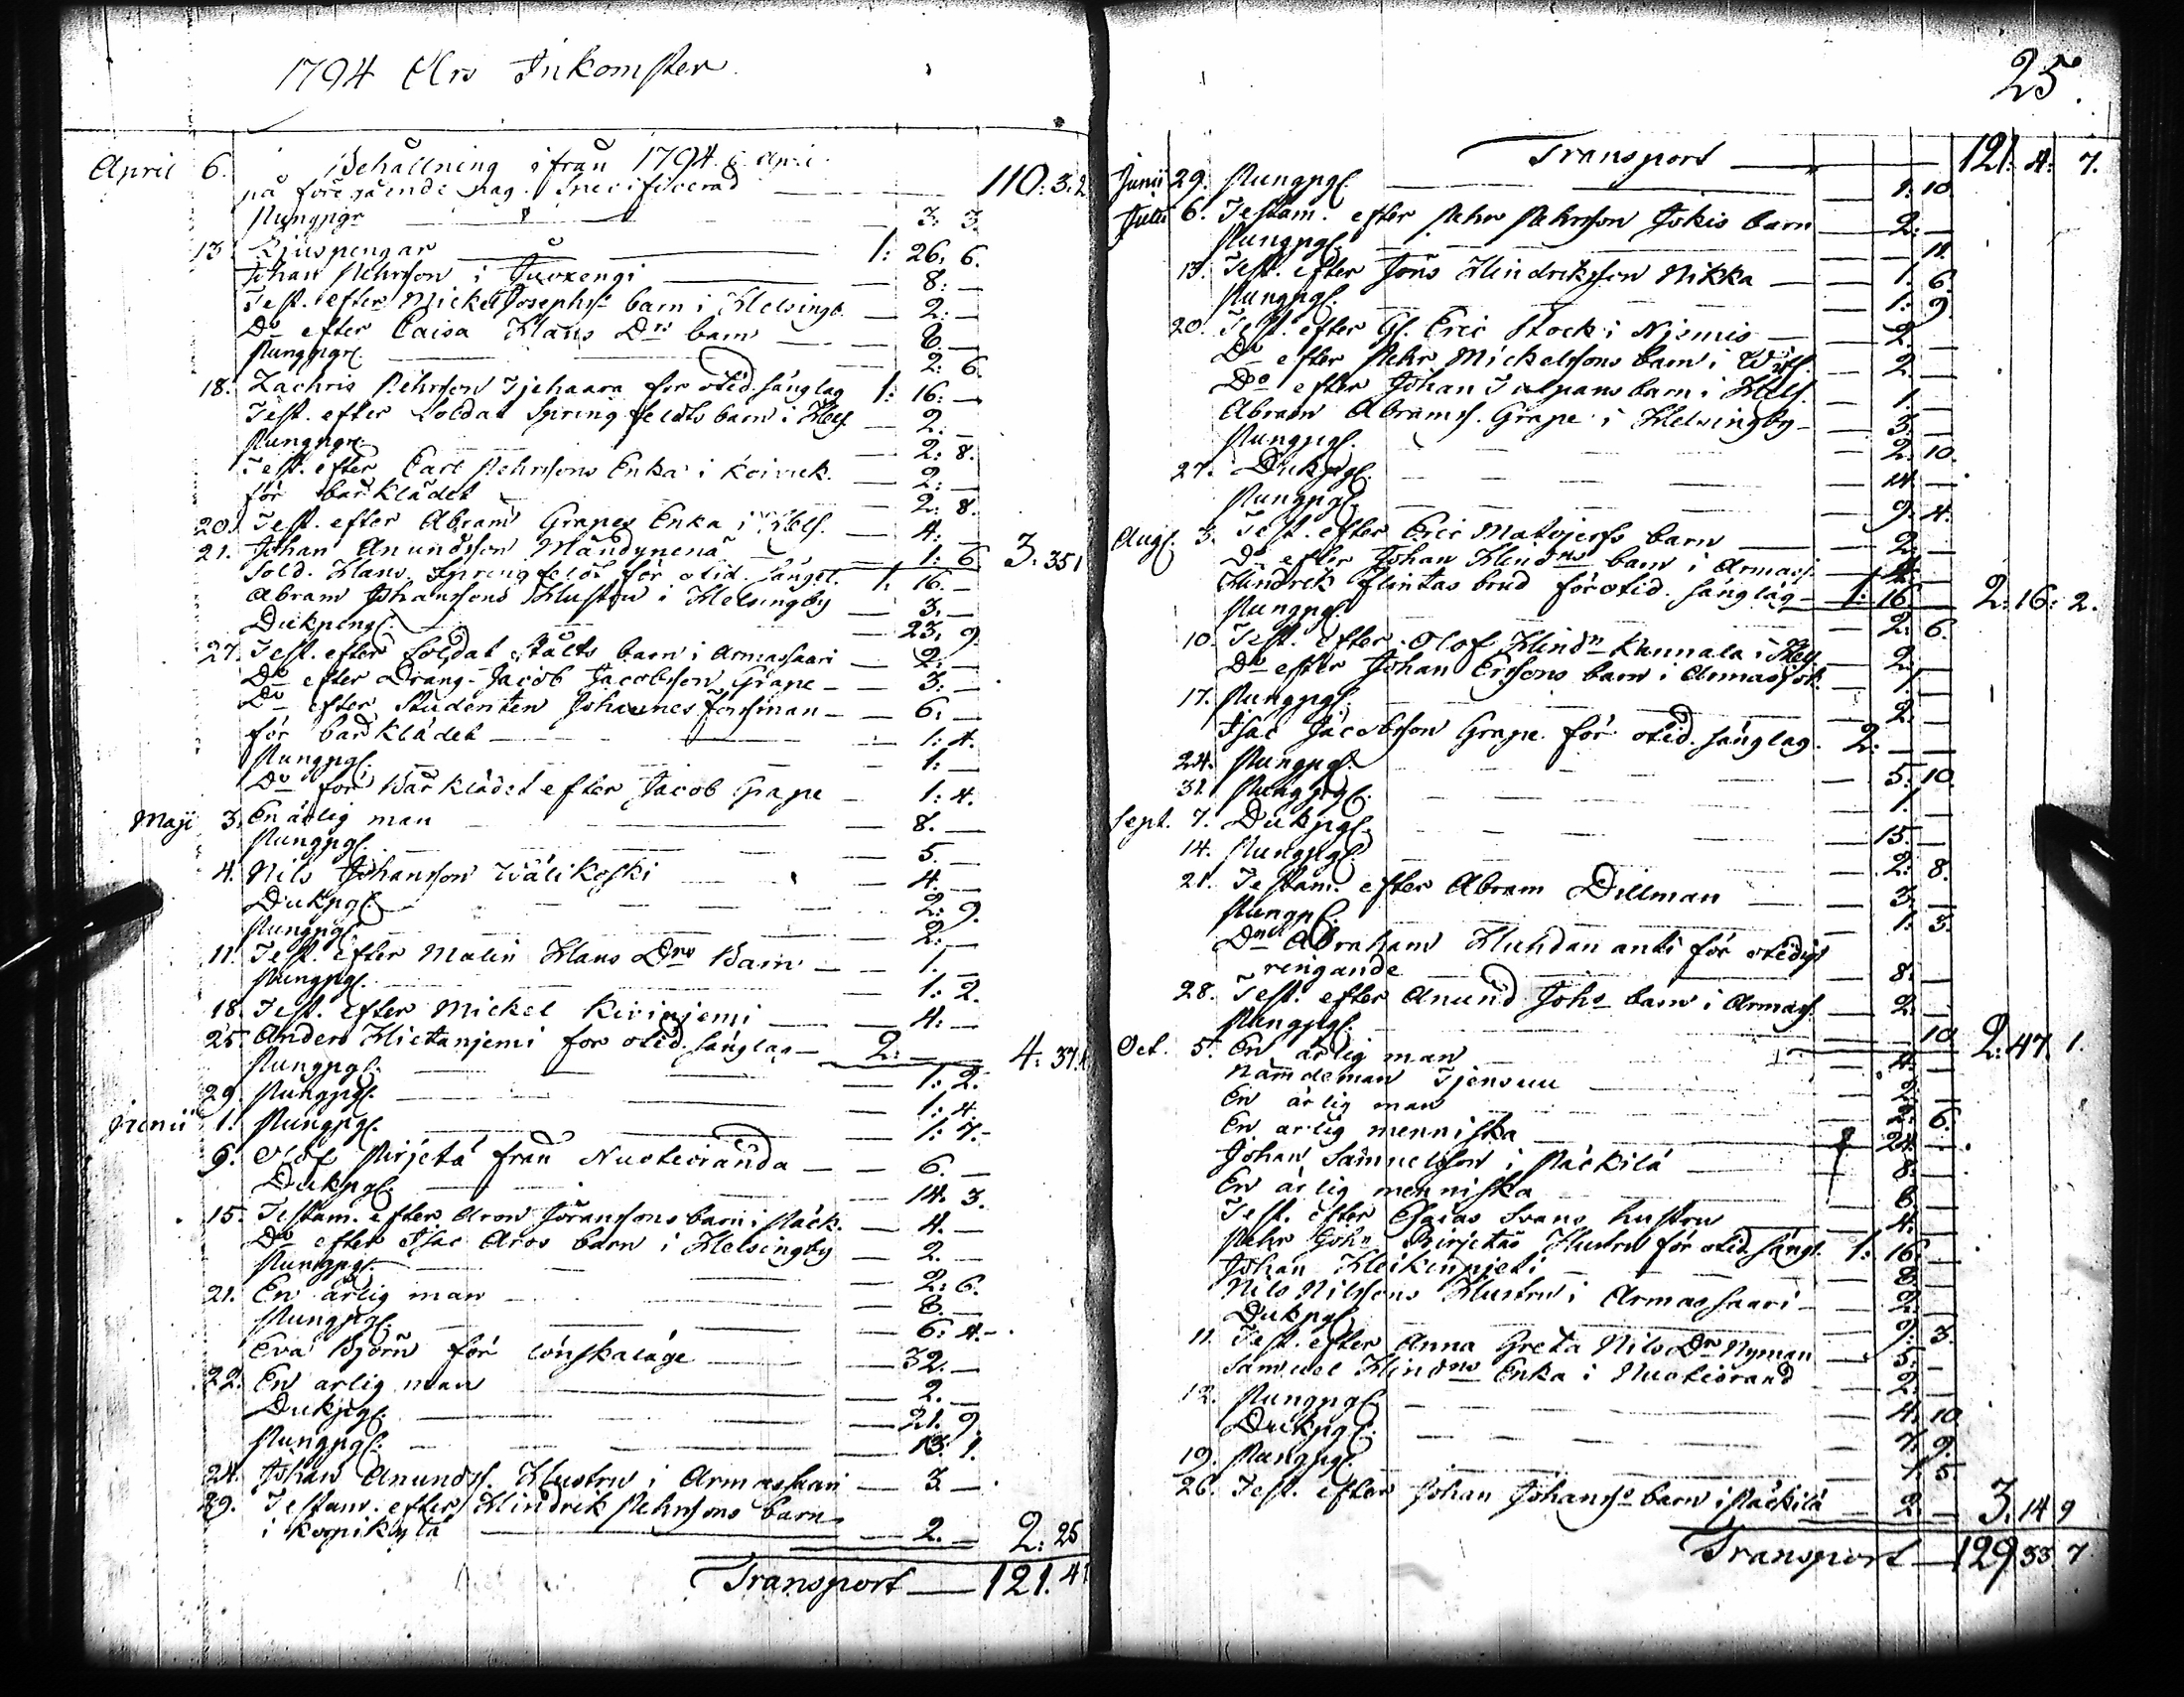 1794 Års Inkomster
April 6. Behållning ifrån 1794. 6 April
på föregående pag. Specificerad 110: 3: 2
Pungpgr 3: 3.
13. Ljuspengar 1: 26: 6.
Johan Pehrsson i Juoxengi 8: —
Test. efter Mickel Josephss barn i Helsingb. 2: —
Do efter Caisa Hans Drs barn 8. —
Pungpgr 2: 6.
18. Zachris Pehrsson Tjehaara för otid. sänglag 1: 16: —
Test. efter Soldat Springfeldts barn i Hels. 2. —
Pungpgr 2: 8.
Test. efter Carl Pehrssons Enka i Koivuk. 2: —
för bårklädet 2: 8.
20. Test. efter Abram Grapes Enka i Hels. 4. —
21. Johan Anundsson Mändynenä 1: 6. 3: 35 1
Sold. Hans Springfeldt för otid. sängl. 1: 16. —
Abram Johanssons Hustru i Helsingby 3. —
Dukpeng. 23: 9.
27. Test. efter Soldat Stålts barn i Armassaari 2: —
Do efter Dräng Jacob Jacobsson Grape 3: —
Do efter Studenten Johannes Forsman 6: —
för bårklädet 1: 4.
Pungpgr. 1: —
Do för Bårklädet efter Jacob Grape 1: 4.
Maji 3. En ärlig man 8. —
Pungpgr. 5. —
4. Nils Johansson Wälikoski 4. —
Dukpgr. 2: 9.
Pungpgr. 2: —
11. Test. efter Malin Hans Drs Barn 1. —
Pungpgr. 1: 2.
18. Test. efter Mickel Kivinjemi 4: —
25. Anders Hietanjemi för otid. sänglag 2: — 4: 37.
Pungpgr. 1: 2.
29. Pungpgr. 1: 4.
Junii 1. Pungpgr. 1: 7.
9. Olof Pirjetä från Nuotioranda 6. —
Dukpgr. 14. 3.
15. Testam. efter Aron Göranssons barn i Päck. 4. —
Do efter Isac Aros barn i Helsingby 2. —
Pungpgr. 2: 6.
21. En ärlig man 8. —
Pungpgr. 6: 4.
Eva Björn för lönskaläge 32. —
22. En ärlig man 2. —
Dukpgr. 21. 9.
Pungpgr. 13. 1.
24. Johan Anunds. Hustru i Armassaari 3. —
29. Testam. efter Hindrek Pehrssons barn
i Korpikylä 2. — 2: 25
Transport 121. 4
25.
Transport 121: 4: 7.
Junii 29. Pungpgr. 1: 10.
Julii 6. Testam. efter Pehr Pehrsson Jokis barn 2: —
Pungpgr. 11.
13. Test. efter Jöns Hindricksson Nikka 1: 6.
Pungpgr. 1: 9.
20. Test. efter Gl. Eric Stock i Njemis 2. —
Do efter Pehr Mickelssons barn i Wits. 2. —
Do efter Johan Talpans barn i Hels. 1. —
Abram Abrams. Grape i Helsingby 3. —
Pungpgr. 2: 10.
27. Dukpgr. 14. —
Pungpgr. 9: 4.
Aug. 3. Test. efter Eric Matojerfs barn 2: —
Do efter Johan Hindrs barn i Armass. 4: —
Hindrek Flintas brud för otid. sänglag 1: 16. — 2: 16: 2.
Pungpgr. 2: 6.
10. Test. efter Olof Hindn Kannala i Hels. 2. —
Do efter Johan Erssons barn i Armassar. 1. —
17. Pungpgr. 2: —
Isac Jacobsson Grape för otid. sänglag. 2: — —
24. Pungpgr. 5: 10.
31. Pungpgr. 1. —
Sept. 7. Dukpgr. 15. —
14. Pungpgr. 2: 8.
21. Testam. efter Abram Dillman 3. —
Pungpr. 1: 3.
Abraham Huhdananti för otidigt
ringande 8. —
28. Test. efter Anund Johs barn i Armass. 2. —
Pungpgr. 10. 2: 47. 1.
Oct. 5. En ärlig man 4. —
Nämdeman Tjensuu 2. —
En ärlig man 2: 6.
En ärlig menniska 24. —
Johan Samuelsson i Päckilä 8. —
En ärlig menniska 8. —
Test. efter Esaias Svans hustru 4. —
Pehr Johs Pirjetäs Hustru för otid. sängl. 1: 16. —
Johan Heikinpjeti 8. —
Nils Nilssons Hustru i Armassaari 2. —
Dukpgr. 9: 3.
11. Test. efter Anna Greta Nils Dr Nyman 5. —
Samuel Hindrs Enka i Nuotiorand 2. —
12. Pungpgr. 4. 10.
Dukpgr. 7. 9.
19. Pungpgr. 1. 5
26. Test. efter Johan Johanss barn i Päckilä 2. — 3. 14 9
Transport 129 33. 7.